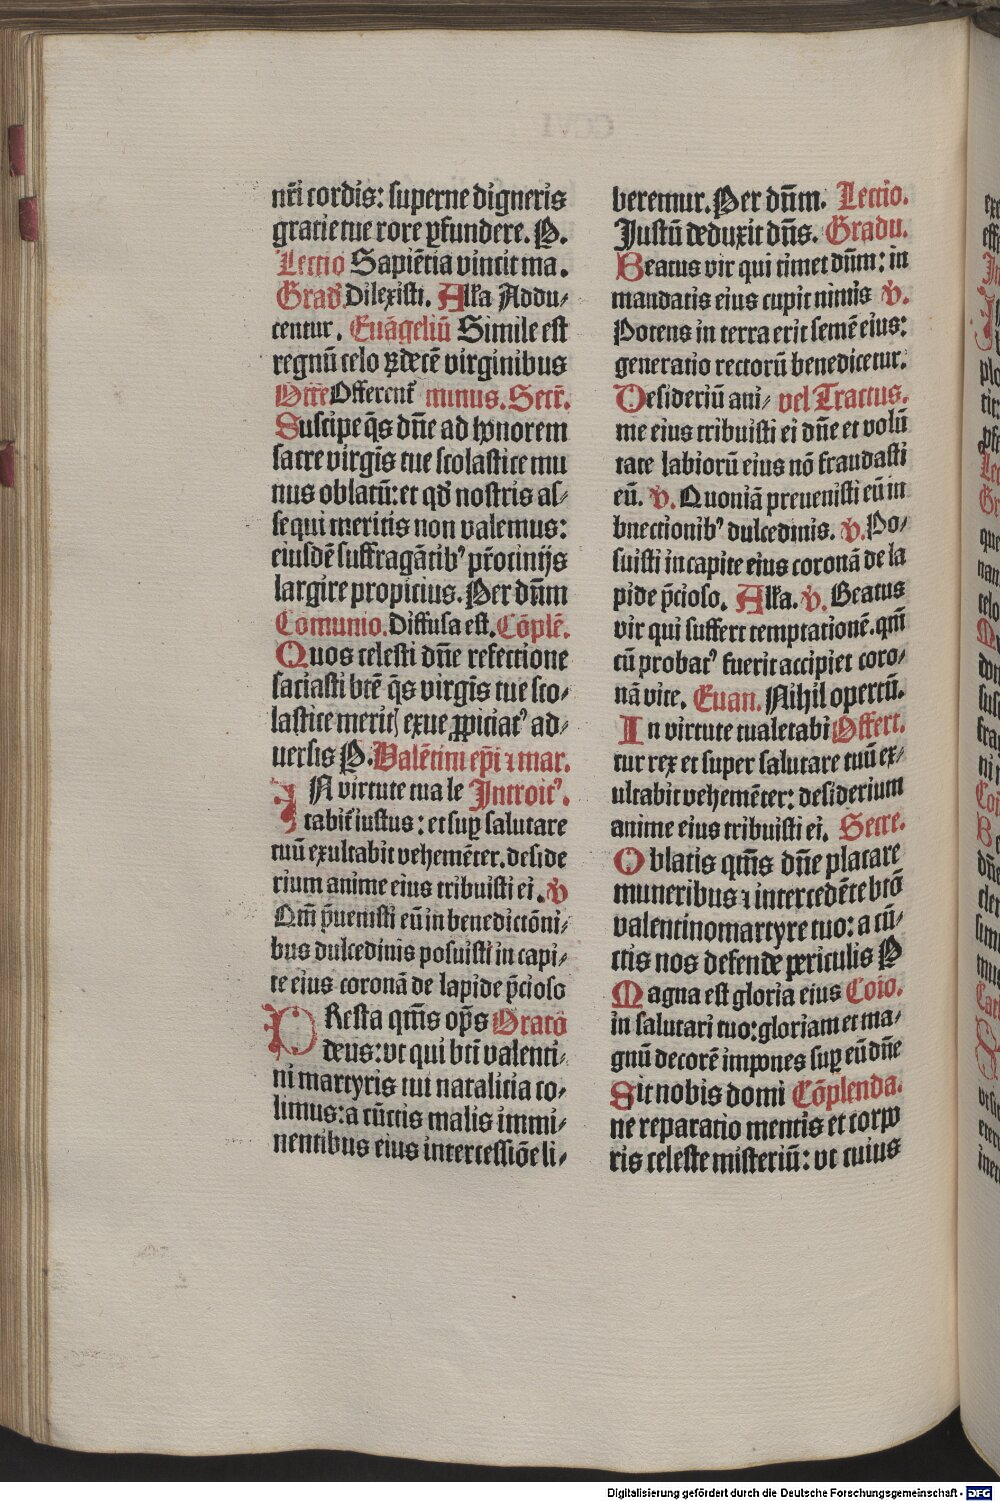 nr̄i cordis: superne digneris
gratie tue rore ꝑfundere. P.
Lectio Sapiē̄tia vincit ma.
Grad̄. Dilexisti. Alľa Addu⸗
centur. Euāgeliū Simile est
regnū celo ꝗ decē virginibus
Offerent̄ minus. Secr̄.
Suscipe q̄s dn̄e ad honorem
sacre virgīs tue scolastice mu
nus oblatū: et qd̓ nostris as⸗
sequi meritis non valemus:
eiusdē suffragātibꝰ pr̄otinijs
largire propicius. Per dn̄m
Cōmunio. Diffusa est. Cōplē.
Quos celesti dn̄e refectione
saciasti btē q̄s virgīs tue sco⸗
lastice merit exue ꝓpiciatꝰ ad⸗
uersis P. Valētini ep̄i ⁊ mar.
IN virtute tua le Introitꝰ.
tabit̄ iustus: et suꝑ salutare
tuū exultabit vehemēter. deside
rium anime eius tribuisti ei. v̄
Qm̄ p̄uenisti eū in benedictōni⸗
bus dulcedinis posuisti in capi⸗
te eius coronā de lapide p̄cioso
PResta qm̄s op̄s Oratō
deus: vt qui btī valenti⸗
ni martyris tui natalicia co⸗
limus: a cūctis malis immi⸗
nentibus eius intercessiōe li⸗
beremur. Per dn̄m. Lectio.
Justū deduxit dn̄s. Gradu.
Beatus vir qui timet dn̄m: in
mandatis eius cupit nimis v̄.
Potens in terra erit semē eius:
generatio rectorū benedicetur.
Desideriū ani⸗ vel Tractus.
me eius tribuisti ei dn̄e et volū
tate labiorū eius nō fraudasti
eū. v̄. Quoniā preuenisti eū in
bn̄ectionibꝰ dulcedinis. v̄. Po⸗
suisti in capite eius coronā de la
pide p̄cioso. Alľa. v̄. Beatus
vir qui suffert temptationē. qm̄
cū probatꝰ fuerit accipiet coro⸗
nā vite. Euan. Nihil opertū.
In virtute tua letabi Offert.
tur rex et super salutare tuū ex⸗
ultabit vehemēter: desiderium
anime eius tribuisti ei. Secre.
Oblatis qm̄s dn̄e placare
muneribus ⁊ intercedēte btō
valentino martyre tuo: a cū⸗
ctis nos defende periculis P
Magna est gloria eius Coīo.
in salutari tuo: gloriam et ma⸗
gnū decorē impones suꝑ eū dn̄e
Sit nobis domi Cōplenda.
ne reparatio mentis et corpo
ris celeste misteriū: vt cuius
Digitalisierung gefördert durch die Deutsche Forschungsgemeinschaft - DFG